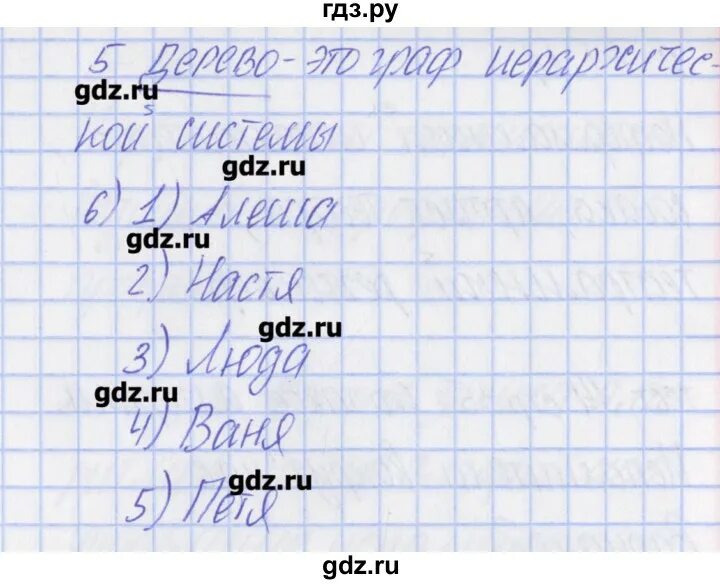 гдз.ру
5 Дерево - это граф иерархичес-
gdz.ru
кой системы
gdz.ru
6) 1) Алеша
gdz.ru
2) Настя
gdz.ru
3) Люда
gdz.ru
4) Ваня
gdz.ru
5) Петя
gdz.ru